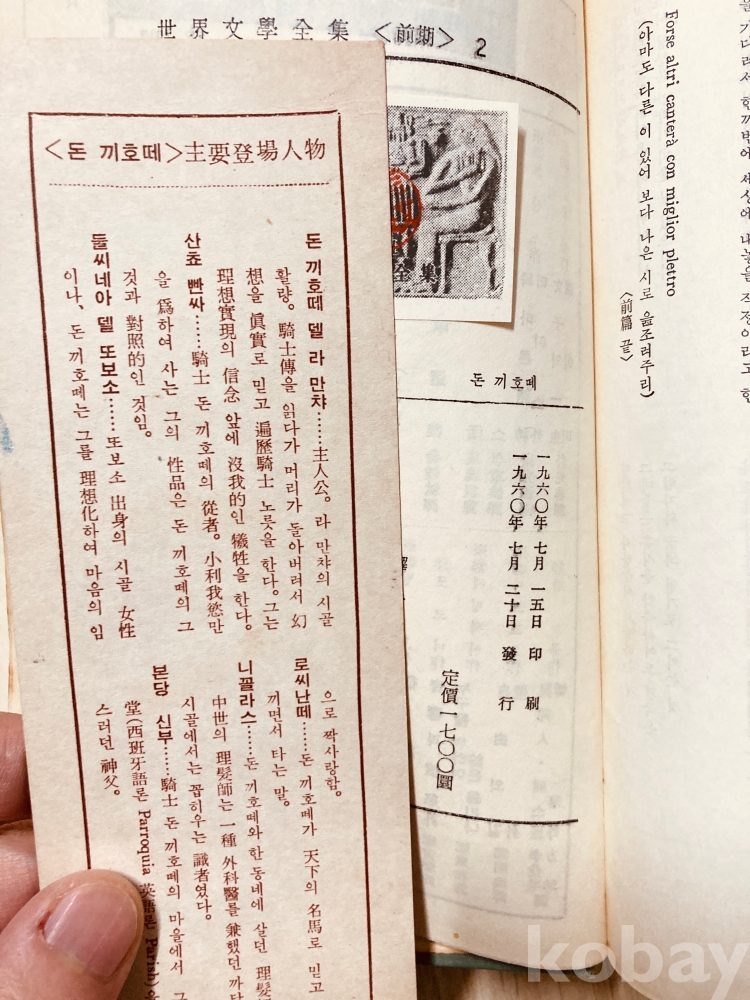 世界文學全集〈前期〉 2
〈돈 끼호떼〉主要登場人物
돈 끼호떼 델 라 만챠……主人公。라 만챠의 시골
활량。騎士傳을 읽다가 머리가 돌아버려서 幻
想을 眞實로 믿고 遍歷騎士 노릇을 한다。그는
理想實現의 信念 앞에 沒我的인 犧牲을 한다。
산쵸 빤싸……騎士 돈 끼호떼의 從者。小利我慾만
을 爲하여 사는 그의 性品은 돈 끼호떼의 그
것과 對照的인 것임。
둘씨네아 델 또보소……또보소 出身의 시골 女性
이나、돈 끼호떼는 그를 理想化하여 마음의 임
으로 짝사랑함。
로씨난떼……돈 끼호떼가 天下의 名馬로 믿고
끼면서 타는 말。
니꼴라스……돈 끼호떼와 한 동네에 살던 理髮
中世의 理髮師는 一種 外科醫를 兼했던 까닭
시골에서는 꼽히우는 識者였다。
본당 신부……騎士 돈 끼호떼의 마을에서
堂(西班牙語론 Parroquia 英語론 Parish)
스러던 神父。
全集
돈 끼호떼
一九六〇年 七月 一五日 印刷
一九六〇年 七月 二十日 發行
定價一七〇〇圜
Forse altri canterà con miglior plettro
(아마도 다른 이 있어 보다 나은 시로 읊조려주리)
〈前篇 끝〉
kobay